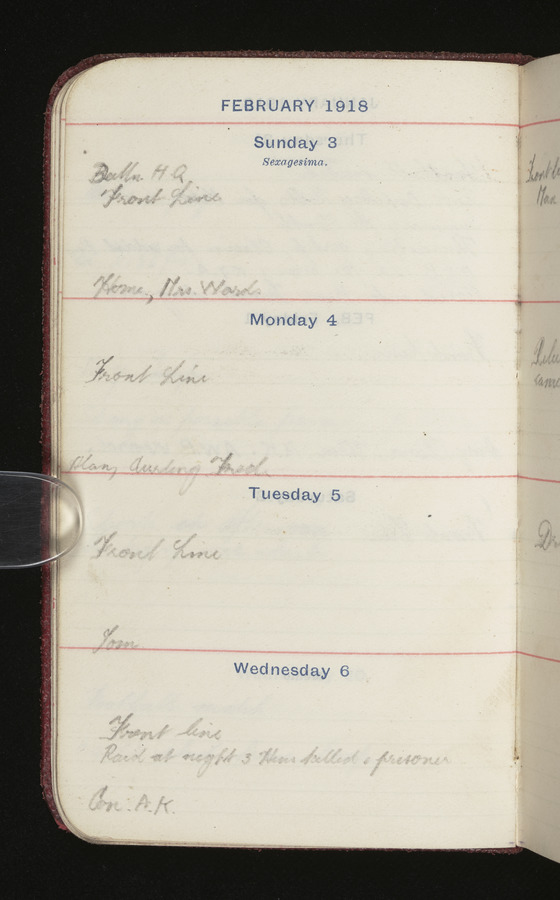 FEBRUARY 1918
Sunday 3
Sexagesima.
Battn H Q.
Front Line
Home, Mrs. Ward
Monday 4
Front Line
Fred
Tuesday 5
Front Line
Tom
Wednesday 6
Front line
Raid at night 3 Huns killed prisoner
A.K.